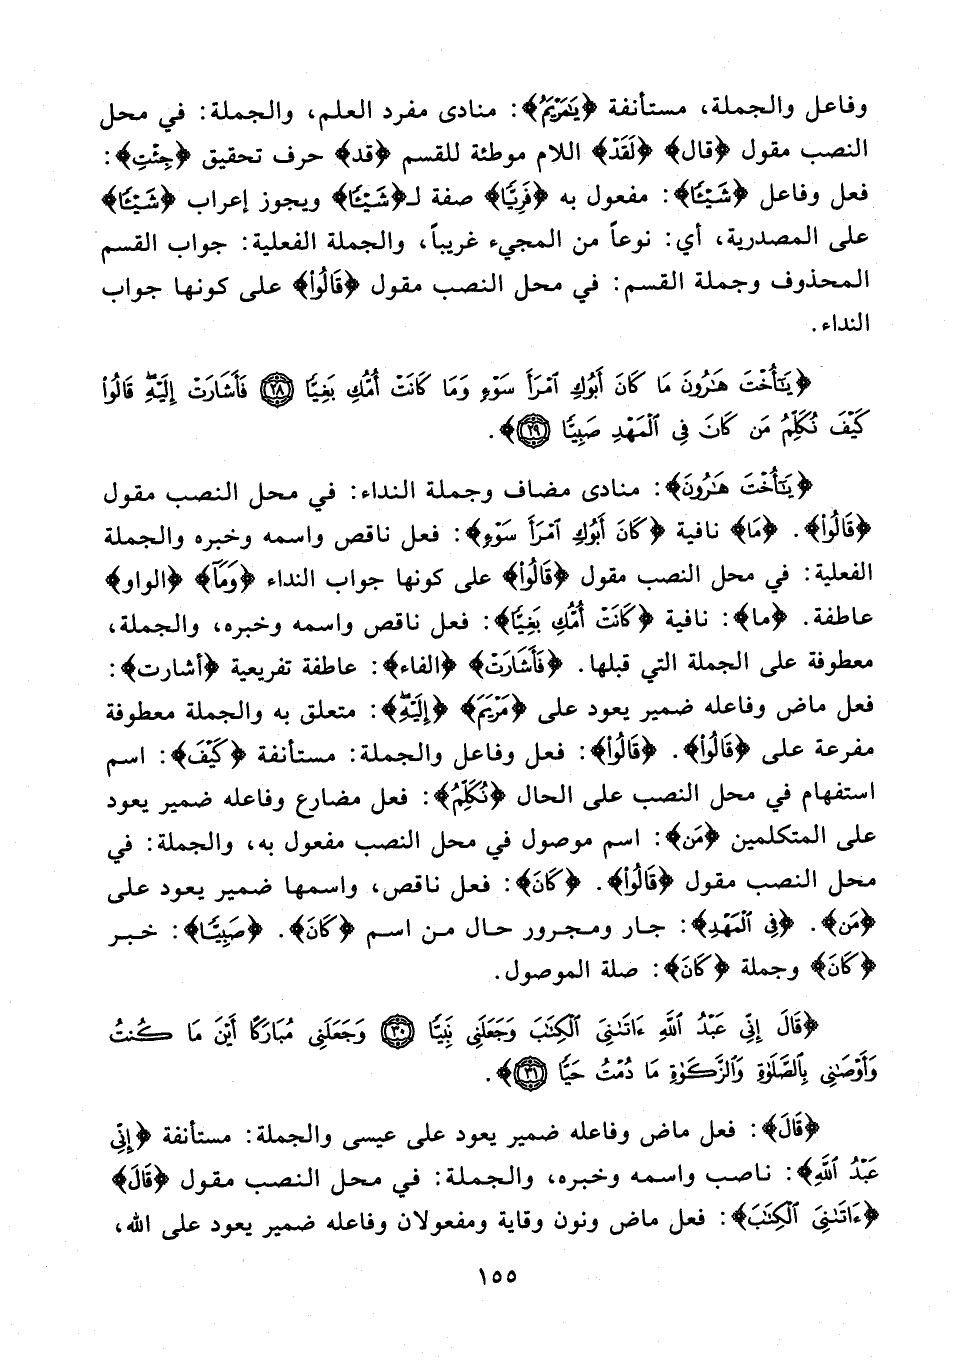 وفاعل والجملة، مستأنفة ﴿يَٰمَرْيَمُ﴾: منادى مفرد العلم، والجملة: في محل
النصب مقول ﴿قال﴾ ﴿لَقَدْ﴾ اللام موطئة للقسم ﴿قد﴾ حرف تحقيق ﴿جِئْتِ﴾:
فعل وفاعل ﴿شَيْـًٔا﴾: مفعول به ﴿فَرِيًّا﴾ صفة لـ﴿شَيْـًٔا﴾ ويجوز إعراب ﴿شَيْـًٔا﴾
على المصدرية، أي: نوعاً من المجيء غريباً، والجملة الفعلية: جواب القسم
المحذوف وجملة القسم: في محل النصب مقول ﴿قَالُوا۟﴾ على كونها جواب
النداء.
﴿يَٰٓأُخْتَ هَٰرُونَ مَا كَانَ أَبُوكِ ٱمْرَأَ سَوْءٍ وَمَا كَانَتْ أُمُّكِ بَغِيًّا ٢٨ فَأَشَارَتْ إِلَيْهِ ۖ قَالُوا۟
كَيْفَ نُكَلِّمُ مَن كَانَ فِى ٱلْمَهْدِ صَبِيًّا ٢٩﴾.
﴿يَٰٓأُخْتَ هَٰرُونَ﴾: منادى مضاف وجملة النداء: في محل النصب مقول
﴿قَالُوا۟﴾. ﴿مَا﴾ نافية ﴿كَانَ أَبُوكِ ٱمْرَأَ سَوْءٍ﴾: فعل ناقص واسمه وخبره والجملة
الفعلية: في محل النصب مقول ﴿قَالُوا۟﴾ على كونها جواب النداء ﴿وَمَآ﴾ ﴿الواو﴾
عاطفة. ﴿ما﴾: نافية ﴿كَانَتْ أُمُّكِ بَغِيًّا﴾: فعل ناقص واسمه وخبره، والجملة،
معطوفة على الجملة التي قبلها. ﴿فَأَشَارَتْ﴾ ﴿الفاء﴾: عاطفة تفريعية ﴿أشارت﴾:
فعل ماض وفاعله ضمير يعود على ﴿مَرْيَمَ﴾ ﴿إِلَيْهِ ۖ﴾: متعلق به والجملة معطوفة
مفرعة على ﴿قَالُوا۟﴾. ﴿قَالُوا۟﴾: فعل وفاعل والجملة: مستأنفة ﴿كَيْفَ﴾: اسم
استفهام في محل النصب على الحال ﴿نُكَلِّمُ﴾: فعل مضارع وفاعله ضمير يعود
على المتكلمين ﴿مَن﴾: اسم موصول في محل النصب مفعول به، والجملة: في
محل النصب مقول ﴿قَالُوا۟﴾. ﴿كَانَ﴾: فعل ناقص، واسمها ضمير يعود على
﴿مَن﴾. ﴿فِى ٱلْمَهْدِ﴾: جار ومجرور حال من اسم ﴿كَانَ﴾. ﴿صَبِيًّا﴾: خبر
﴿كَانَ﴾ وجملة ﴿كَانَ﴾: صلة الموصول.
﴿قَالَ إِنِّى عَبْدُ ٱللَّهِ ءَاتَىٰنِىَ ٱلْكِتَٰبَ وَجَعَلَنِى نَبِيًّا ٣٠ وَجَعَلَنِى مُبَارَكًا أَيْنَ مَا كُنتُ
وَأَوْصَٰنِى بِٱلصَّلَوٰةِ وَٱلزَّكَوٰةِ مَا دُمْتُ حَيًّا ٣١﴾.
﴿قَالَ﴾: فعل ماض وفاعله ضمير يعود على عيسى والجملة: مستأنفة ﴿إِنِّى
عَبْدُ ٱللَّهِ﴾: ناصب واسمه وخبره، والجملة: في محل النصب مقول ﴿قَالَ﴾
﴿ءَاتَىٰنِىَ ٱلْكِتَٰبَ﴾: فعل ماض ونون وقاية ومفعولان وفاعله ضمير يعود على الله،
١٥٥